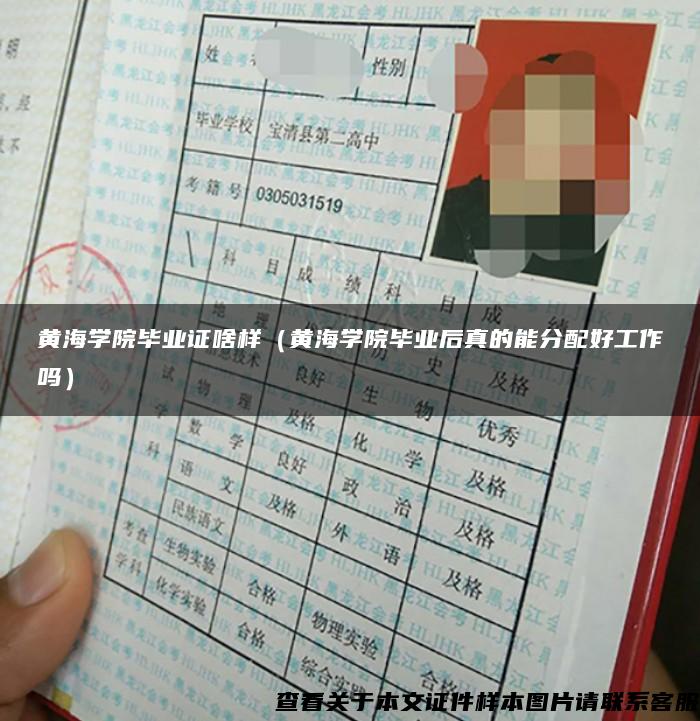 明
经
不
姓
性别
毕业学校 宝清县第二高中
考籍号 0305031519
科目 成绩 科目 成绩
地理 历史 及格
信息技术 良好 生物 优秀
物理 及格 化学 及格
数学 良好 政治 及格
语文 及格 外语 及格
民族语文
考试学科
考查学科
生物实验 合格 物理实验 合格
化学实验 合格 综合实践
黄海学院毕业证啥样（黄海学院毕业后真的能分配好工作
吗）
查看关于本文证件样本图片请联系客服